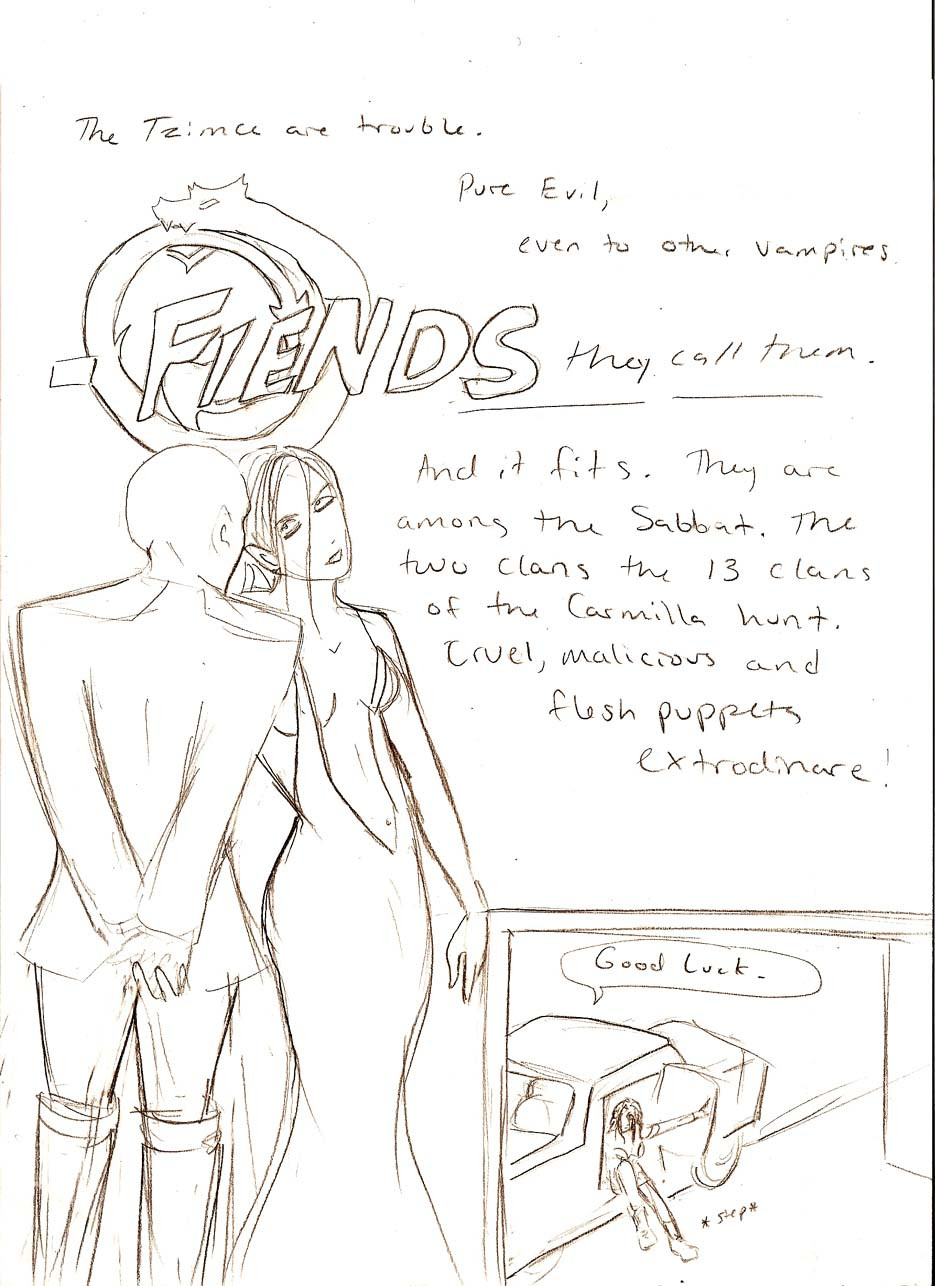 The Tzimce are trouble.
Pure Evil,
even to other vampires.
FIENDS they call them.
And it fits. They are
among the Sabbat. The
two clans the 13 clans
of the Carmilla hunt.
Cruel, malicious and
flesh puppets
extrodinare!
Good Luck.
*step*